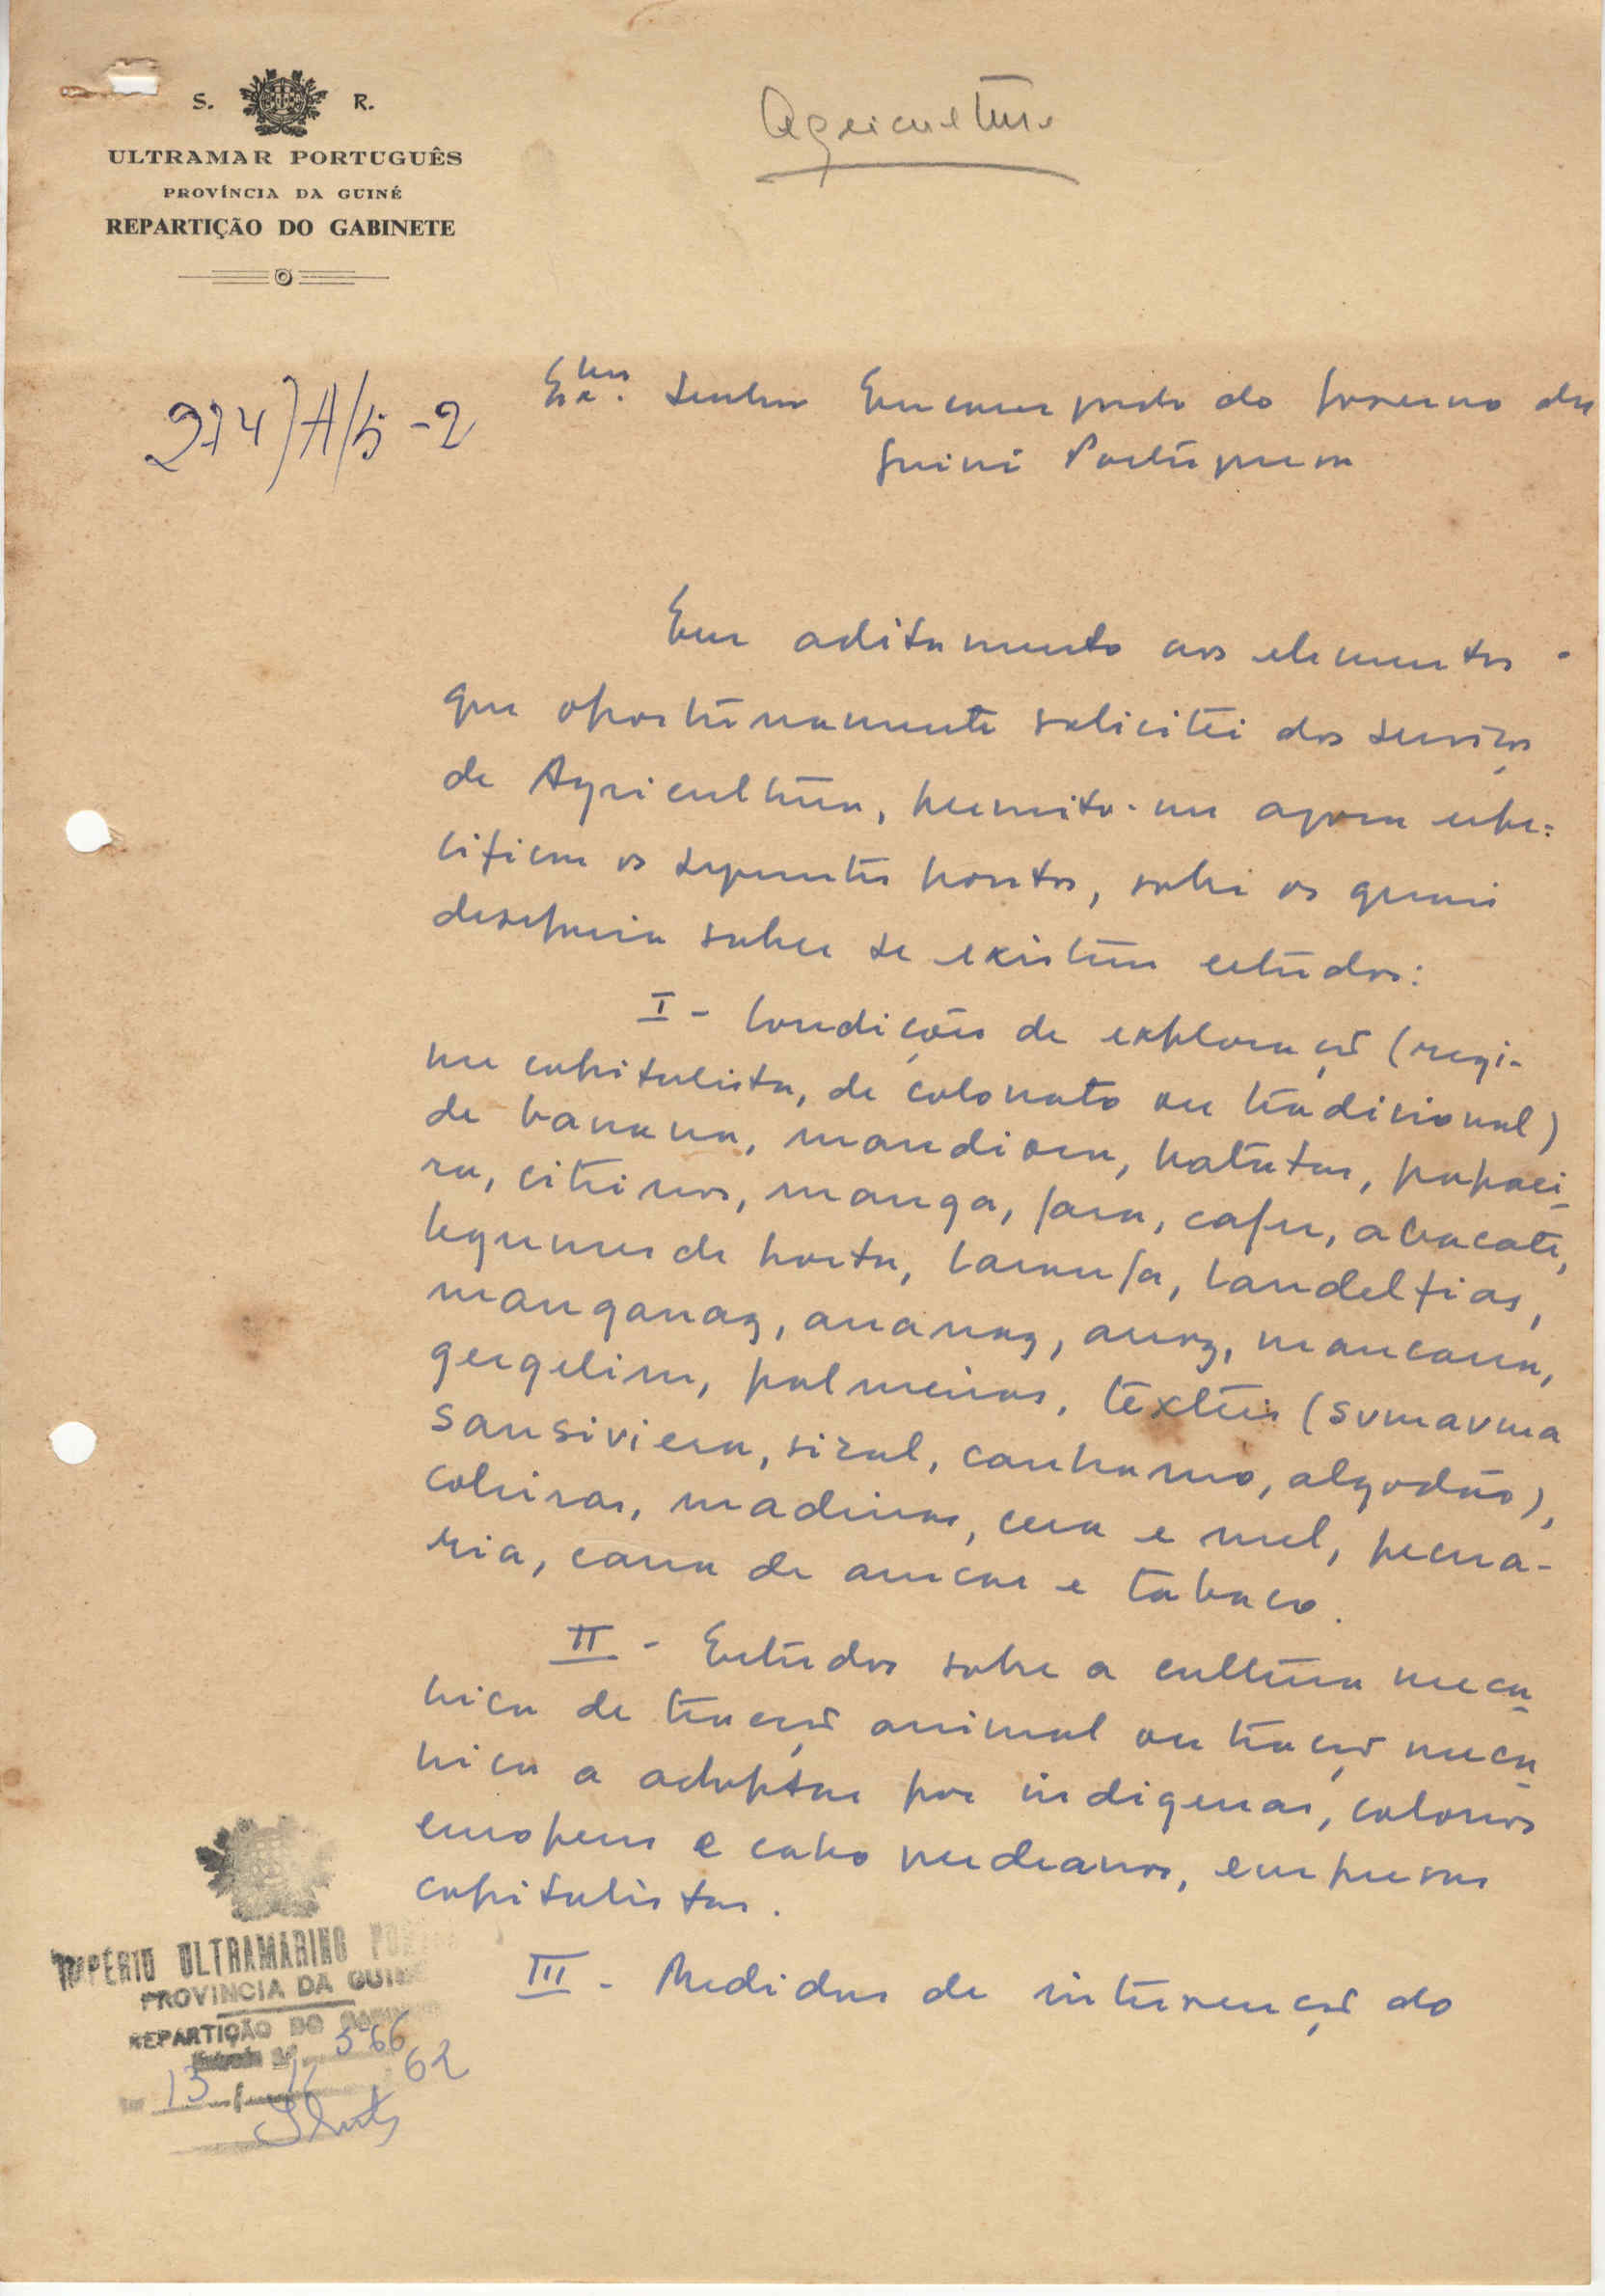 S. R.
ULTRAMAR PORTUGUÊS
PROVÍNCIA DA GUINÉ
REPARTIÇÃO DO GABINETE
Agricultura
274/A/5-2
Exmo. Senhor Encarregado do Governo da
Guiné Portuguesa
Em aditamento aos elementos
que oportunamente solicitei dos serviços
de Agricultura, permito-me agora espe=
cificar os seguintes pontos, sobre os quais
desejaria saber se existem estudos:
I - Condições de exploração (regi-
me capitalista, de colonato ou tradicional)
de banana, mandioca, batatas, papaei-
ra, citrinos, manga, cajú, abacate,
legumes de horta, laranja,
manganaz, ananaz, arroz, mancarra,
gergelim, palmeiras, texteis (sumauma
sansiviera, sizal, canhamo, algodão),
coleiras, madeiras, cera e mel, pecuá-
ria, cana de açucar e tabaco.
II - Estudos sobre a cultura mecâ-
nica de tracção animal ou tracção mecâ-
nica a adoptar por indigenas, colonos
europeus e cabo verdeanos, empresas
capitalistas.
III - Medidas de intervenção do
IMPÉRIO ULTRAMARINO
PROVINCIA DA GUINÉ
REPARTIÇÃO DO GABINETE
566
13 / 62